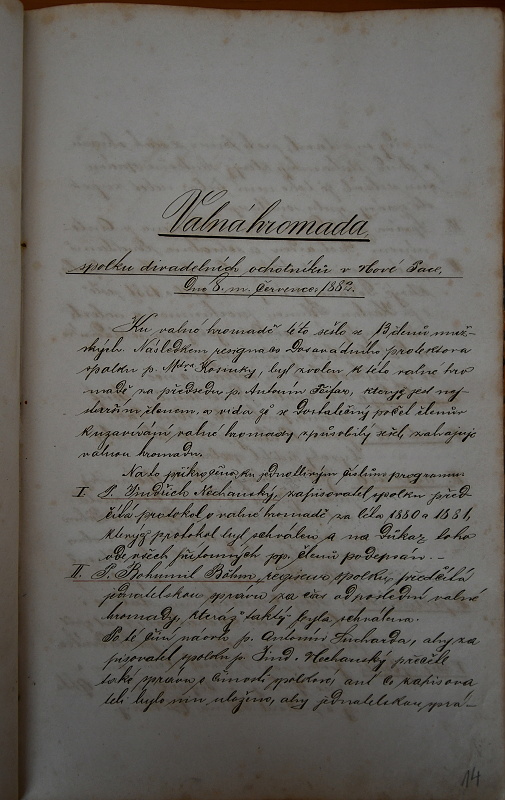 Valná hromada
spolku divadelních ochotníků v Nové Pace,
Dne 8. m. července 1882.
Ku valné hromadě této sešlo se 13 členů muž-
ských. Následkem resignace dosavádního protektora
spolku p. Kosinky, byl zvolen k této valné hro
madě za předsedu p. Antonín Fejfar, kterýž jest nej-
starším členem, a vida že dostatečný počet členův
k uzavírání valné hromady způsobilý sešel, zahajuje
valnou hromadu.
Na to přikročeno ku jednotlivým číslům programu.
I. P. Jindřich Nechanský, zapisovatel spolku před-
čítá protokol o valné hromadě za léta 1880 a 1881,
kterýž protokol byl schválen a na důkaz toho
ode všech přítomných pp. členů podepsán. –
II. P. Bohumil Böhm, regisseur spolku, předčítá
jednatelskou zprávu za čas od poslední valné
hromady, kteráž taktéž byla schválena.
Poté činí návrh p. Antonín Sucharda, aby za
pisovatel spolku p. Jind. Nechanský přečetl
též zprávu o činnosti spolkové, ant co zapisova
teli bylo mu uloženo, aby jednatelskou zprá-
14